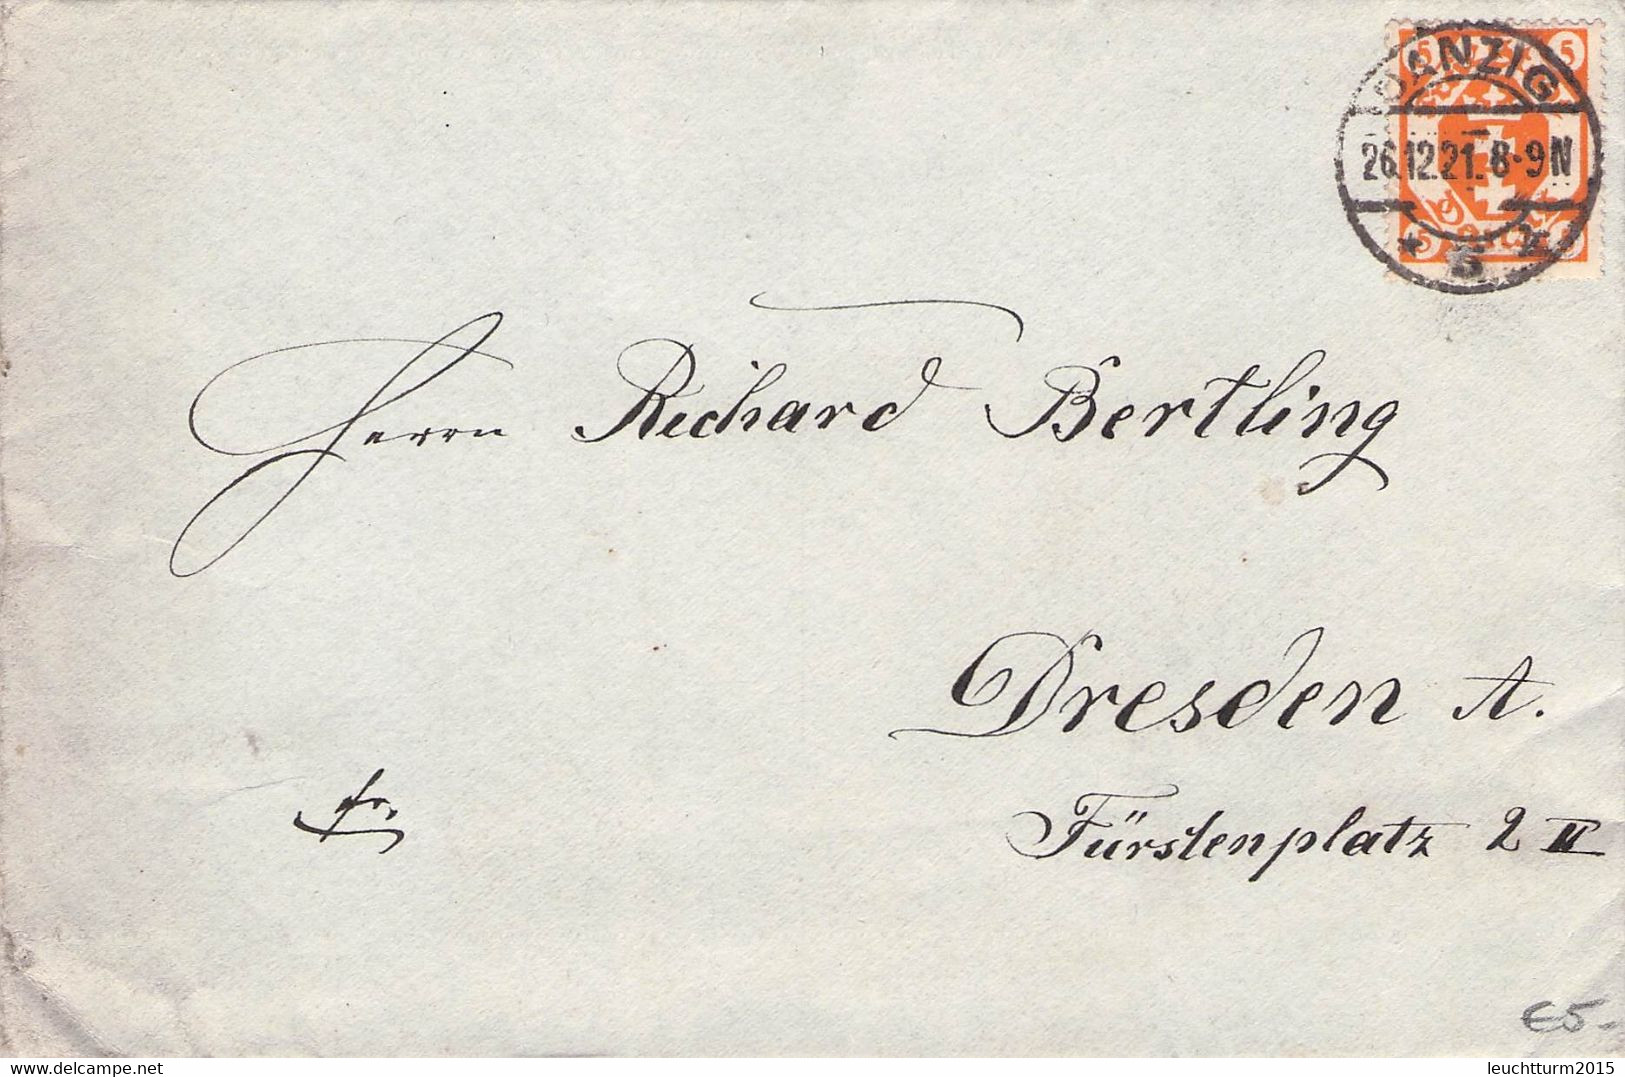 5 5
DANZIG
26.12.21. 8-9 N
5
5
Herrn Richard Bertling
Dresden A.
Fürstenplatz 2 II
fr.
€5.-
delcampe.net
leuchtturm2015